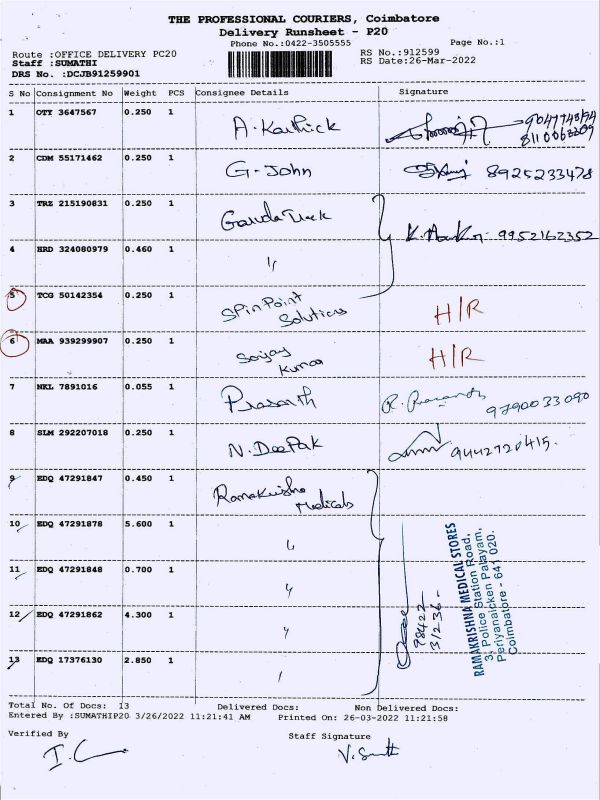 THE PROFESSIONAL COURIERS, Coimbatore
Delivery Runsheet - P20
Phone No.:0422-3505555 Page No.:1
Route :OFFICE DELIVERY PC20 RS No.:912599
Staff :SUMATHI RS Date:26-Mar-2022
DRS No. :DCJB91259901
S No Consignment No Weight PCS Consignee Details Signature
1 OTY 3647567 0.250 1 A. Karthick
8110063209
2 CDM 55171462 0.250 1 G-John 8925233478
3 TRZ 215190831 0.250 1
K. 9952162352
4 HRD 324080979 0.460 1 "
5 TCG 50142354 0.250 1 SPinPoint Solutions H/R
6 MAA 939299907 0.250 1 Sanjay Kumar H/R
7 NKL 7891016 0.055 1 Prasanth R. Prasanth 9790033090
8 SLM 292207018 0.250 1 N. DeePak 9442720415.
9 EDQ 47291847 0.450 1 Ramakrishna Medicals
10 EDQ 47291878 5.600 1 "
11 EDQ 47291848 0.700 1 "
12 EDQ 47291862 4.300 1 "
13 EDQ 17376130 2.850 1 "
98422
31236-
RAMAKRISHNA MEDICAL STORES
3, Police Station Road,
Periyanaicken Palayam,
Coimbatore - 641 020.
Total No. Of Docs: 13 Delivered Docs: Non Delivered Docs:
Entered By :SUMATHIP20 3/26/2022 11:21:41 AM Printed On: 26-03-2022 11:21:58
Verified By Staff Signature